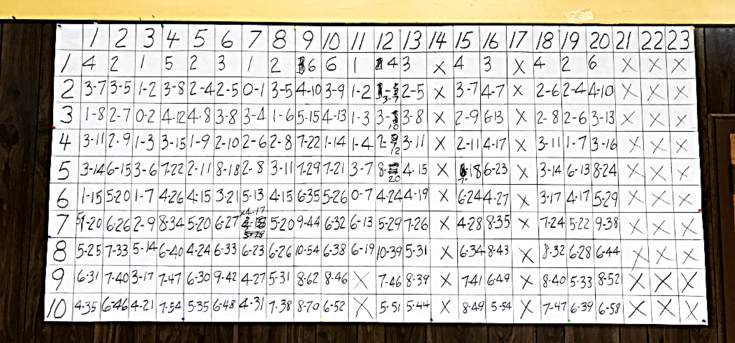 1 2 3 4 5 6 7 8 9 10 11 12 13 14 15 16 17 18 19 20 21 22 23
1 4 2 1 5 2 3 1 2 6 6 1 4 3 X 4 3 X 4 2 6 X X X
2 3-7 3-5 1-2 3-8 2-4 2-5 0-1 3-5 4-10 3-9 1-2 3-7 2-5 X 3-7 4-7 X 2-6 2-4 4-10 X X X
3 1-8 2-7 0-2 4-12 4-8 3-8 3-4 1-6 5-15 4-13 1-3 3-10 3-8 X 2-9 6-13 X 2-8 2-6 3-13 X X X
4 3-11 2-9 1-3 3-15 1-9 2-10 2-6 2-8 7-22 1-14 1-4 2-12 3-11 X 2-11 4-17 X 3-11 1-7 3-16 X X X
5 3-14 6-15 3-6 7-22 2-11 8-18 2-8 3-11 7-29 7-21 3-7 8-20 4-15 X 7-18 6-23 X 3-14 6-13 8-24 X X X
6 1-15 5-20 1-7 4-26 4-15 3-21 5-13 4-15 6-35 5-26 0-7 4-24 4-19 X 6-24 4-27 X 3-17 4-17 5-29 X X X
7 5-20 6-26 2-9 8-34 5-20 6-27 5-20 9-44 6-32 6-13 5-29 7-26 X 4-28 8-35 X 7-24 5-22 9-38 X X X
8 5-25 7-33 5-14 6-40 4-24 6-33 6-23 6-26 10-54 6-38 6-19 10-39 5-31 X 6-34 8-43 X 8-32 6-28 6-44 X X X
9 6-31 7-40 3-17 7-47 6-30 9-42 4-27 5-31 8-62 8-46 X 7-46 8-39 X 7-41 6-49 X 8-40 5-33 8-52 X X X
10 4-35 6-46 4-21 7-54 5-35 6-48 4-31 7-38 8-70 6-52 X 5-51 5-44 X 8-49 5-54 X 7-47 6-39 6-58 X X X